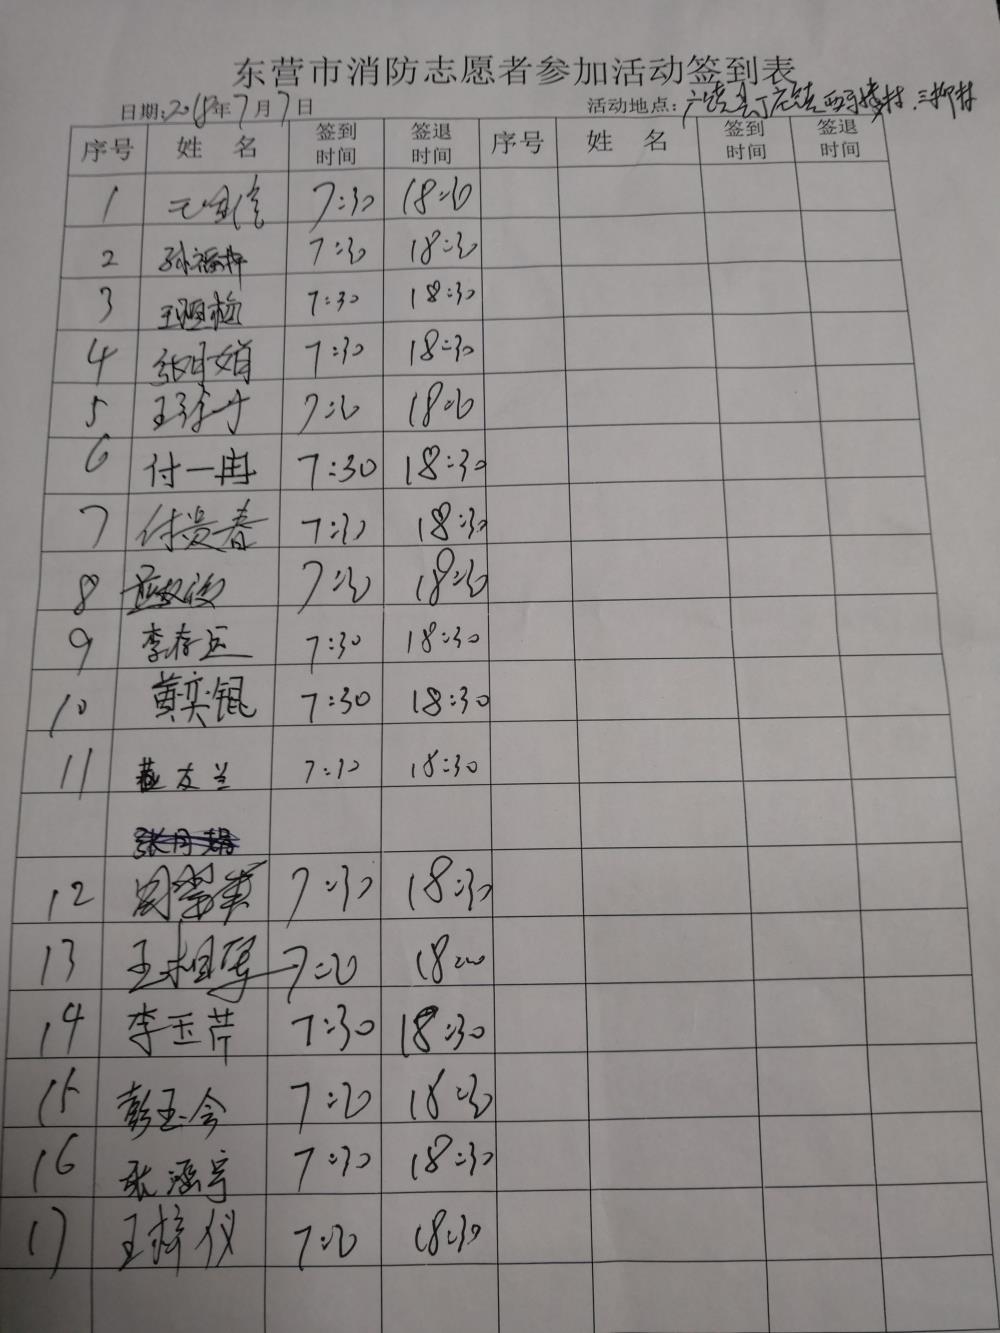 东营市消防志愿者参加活动签到表
日期:2018年7月7日 活动地点:广饶县丁庄镇 村、三柳村
序号 姓名 签到时间 签退时间 序号 姓名 签到时间 签退时间
1 7:30 18:30
2 孙福 7:30 18:30
3 王 梅 7:30 18:30
4 张月娟 7:30 18:30
5 王 7:30 18:30
6 付一冉 7:30 18:30
7 付贵春 7:30 18:30
8 7:30 18:30
9 李存 7:30 18:30
10 黄奕锟 7:30 18:30
11 友兰 7:30 18:30
张月娟
12 周 英 7:30 18:30
13 王相军 7:30 18:30
14 李玉芹 7:30 18:30
15 彭玉会 7:30 18:30
16 张涵宇 7:30 18:30
17 王梓仪 7:30 18:30